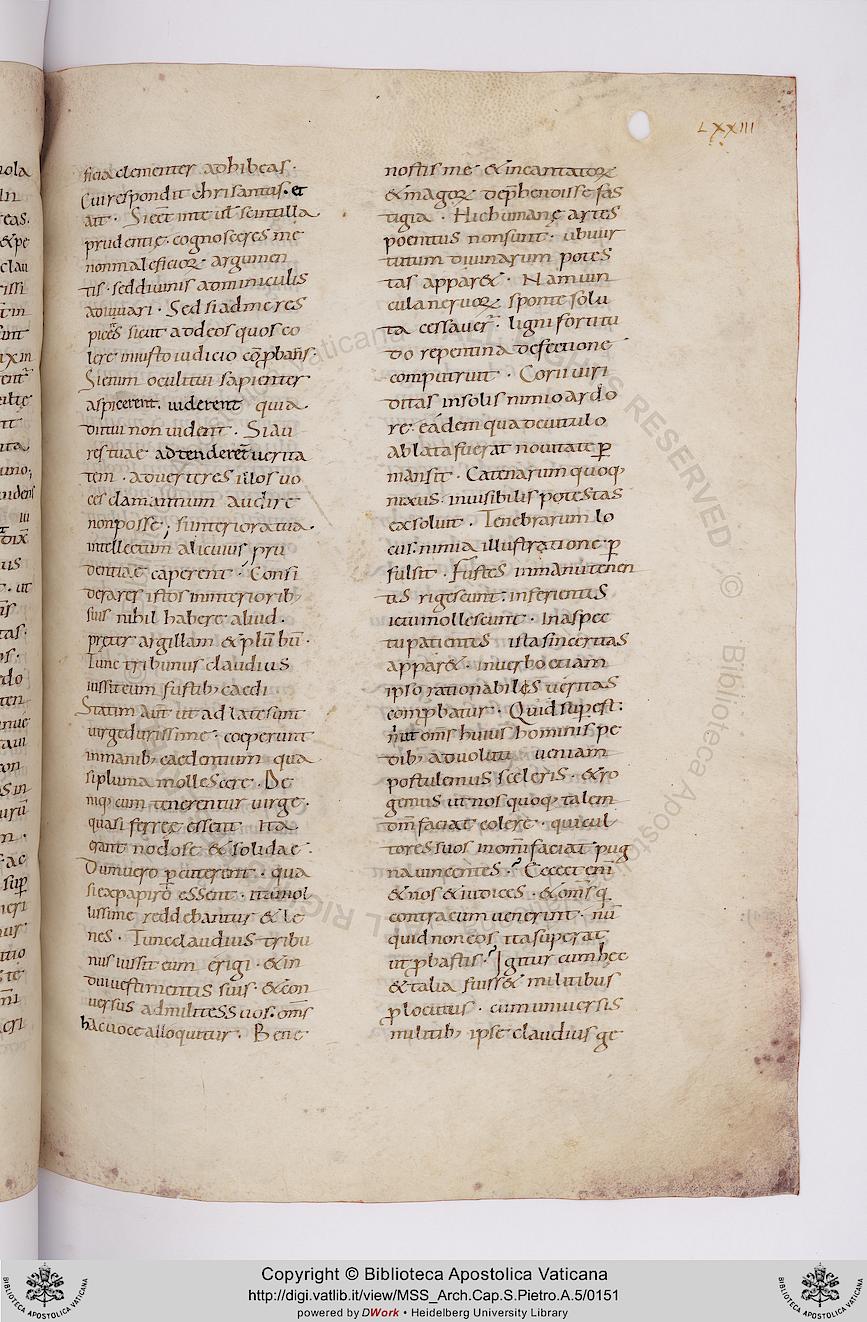 LXXIII
ficia clementer adhibeas·
Cui respondit chrisantus· et
ait· Si eēt in te ul̄ scintilla
prudentię· cognosceres me
non maleficioꝝ argumen
tis· sed divinis adminiculis
adiuuari· Sed si ad me res
picēs sicut ad deos quos co
lere iniusto iudicio cōprobans·
Si enim oculi tui sapienter
aspicerent· uiderent quia·
dii tui non uident· Si au
res tuae adtenderet uerita
tem· aduerteres illos uo
ces clamantium audire
non posse; si interiora tua·
intellectum alicuius pru
dentiae caperent· Consi
derares istos in interiorib;
suis nihil habere aliud·
pręter argillam & plūbū·
Tunc tribunus claudius
iussit eum fustib; caedi
Statim aūt ut ad latesunt
virge durissime· coeperunt
in manib; caedentium qua
si pluma mollescere· De
niq; cum tenerentur uirge·
quasi ferree essent· Ita·
erant nodose & solidae·
Dum uero pcuterent· qua
si ex papiro essent· ita mol
lissime reddebantur & le
nes· Tunc claudius tribu
nus iussit eum erigi· & in
dui uestimentis suis· & con
versus ad milites suos· om̄s
hac uoce alloquitur· Bene
nostis me & incantatoꝝ
& magoꝝ dep̄hendisse fas
tigia· Hic humanę artes
poenitus non sunt· ubi uir
tutum diuinarum potes
tas appar&· Nam uin
cula neruoꝝ sponte solu
ta cessauer̄· ligni fortitu
do repentina defectione
computruit· Corii uiri
ditas in solis nimio ardo
re· eadem qua de uitulo
ablata fuerat nouitate ꝑ
mansit· Catenarum quoq;
nexus· inuisibilis potestas
exsoluit· Tenebrarum lo
cus: nimia illustratione ꝑ
fulsit· Fustes in manu tenen
tis rigescunt: in ferientis
ictu mollescunt· In aspec
tu patientis ista sinceritas
appar&· in uerbo etiam
ipso rationabilis ueritas
comꝓbatur· Quid supest:
n̄ ut om̄s huius hominis pe
dib; aduoluti ueniam
postulemus sceleris· & ro
gemus ut nos quoq; talem
dm̄ faciat colere· qui cul
tores suos in om̄i faciat pug
na uincentes· Ecce et eni
& nos & iudices· & om̄s q
contra eum uenerint· nū
quid non eos ita superat
ut ꝓbastis· Igitur cum hęc
& talia fuiss& militibus
ꝓlocutus· cum uniuersis
militib; ipse claudius ge
Copyright © Biblioteca Apostolica Vaticana
http://digi.vatlib.it/view/MSS_Arch.Cap.S.Pietro.A.5/0151
powered by DWork • Heidelberg University Library